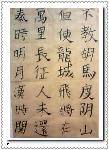 秦時明月漢時關
萬里長征人未還
但使龍城飛將在
不教胡馬度阴山